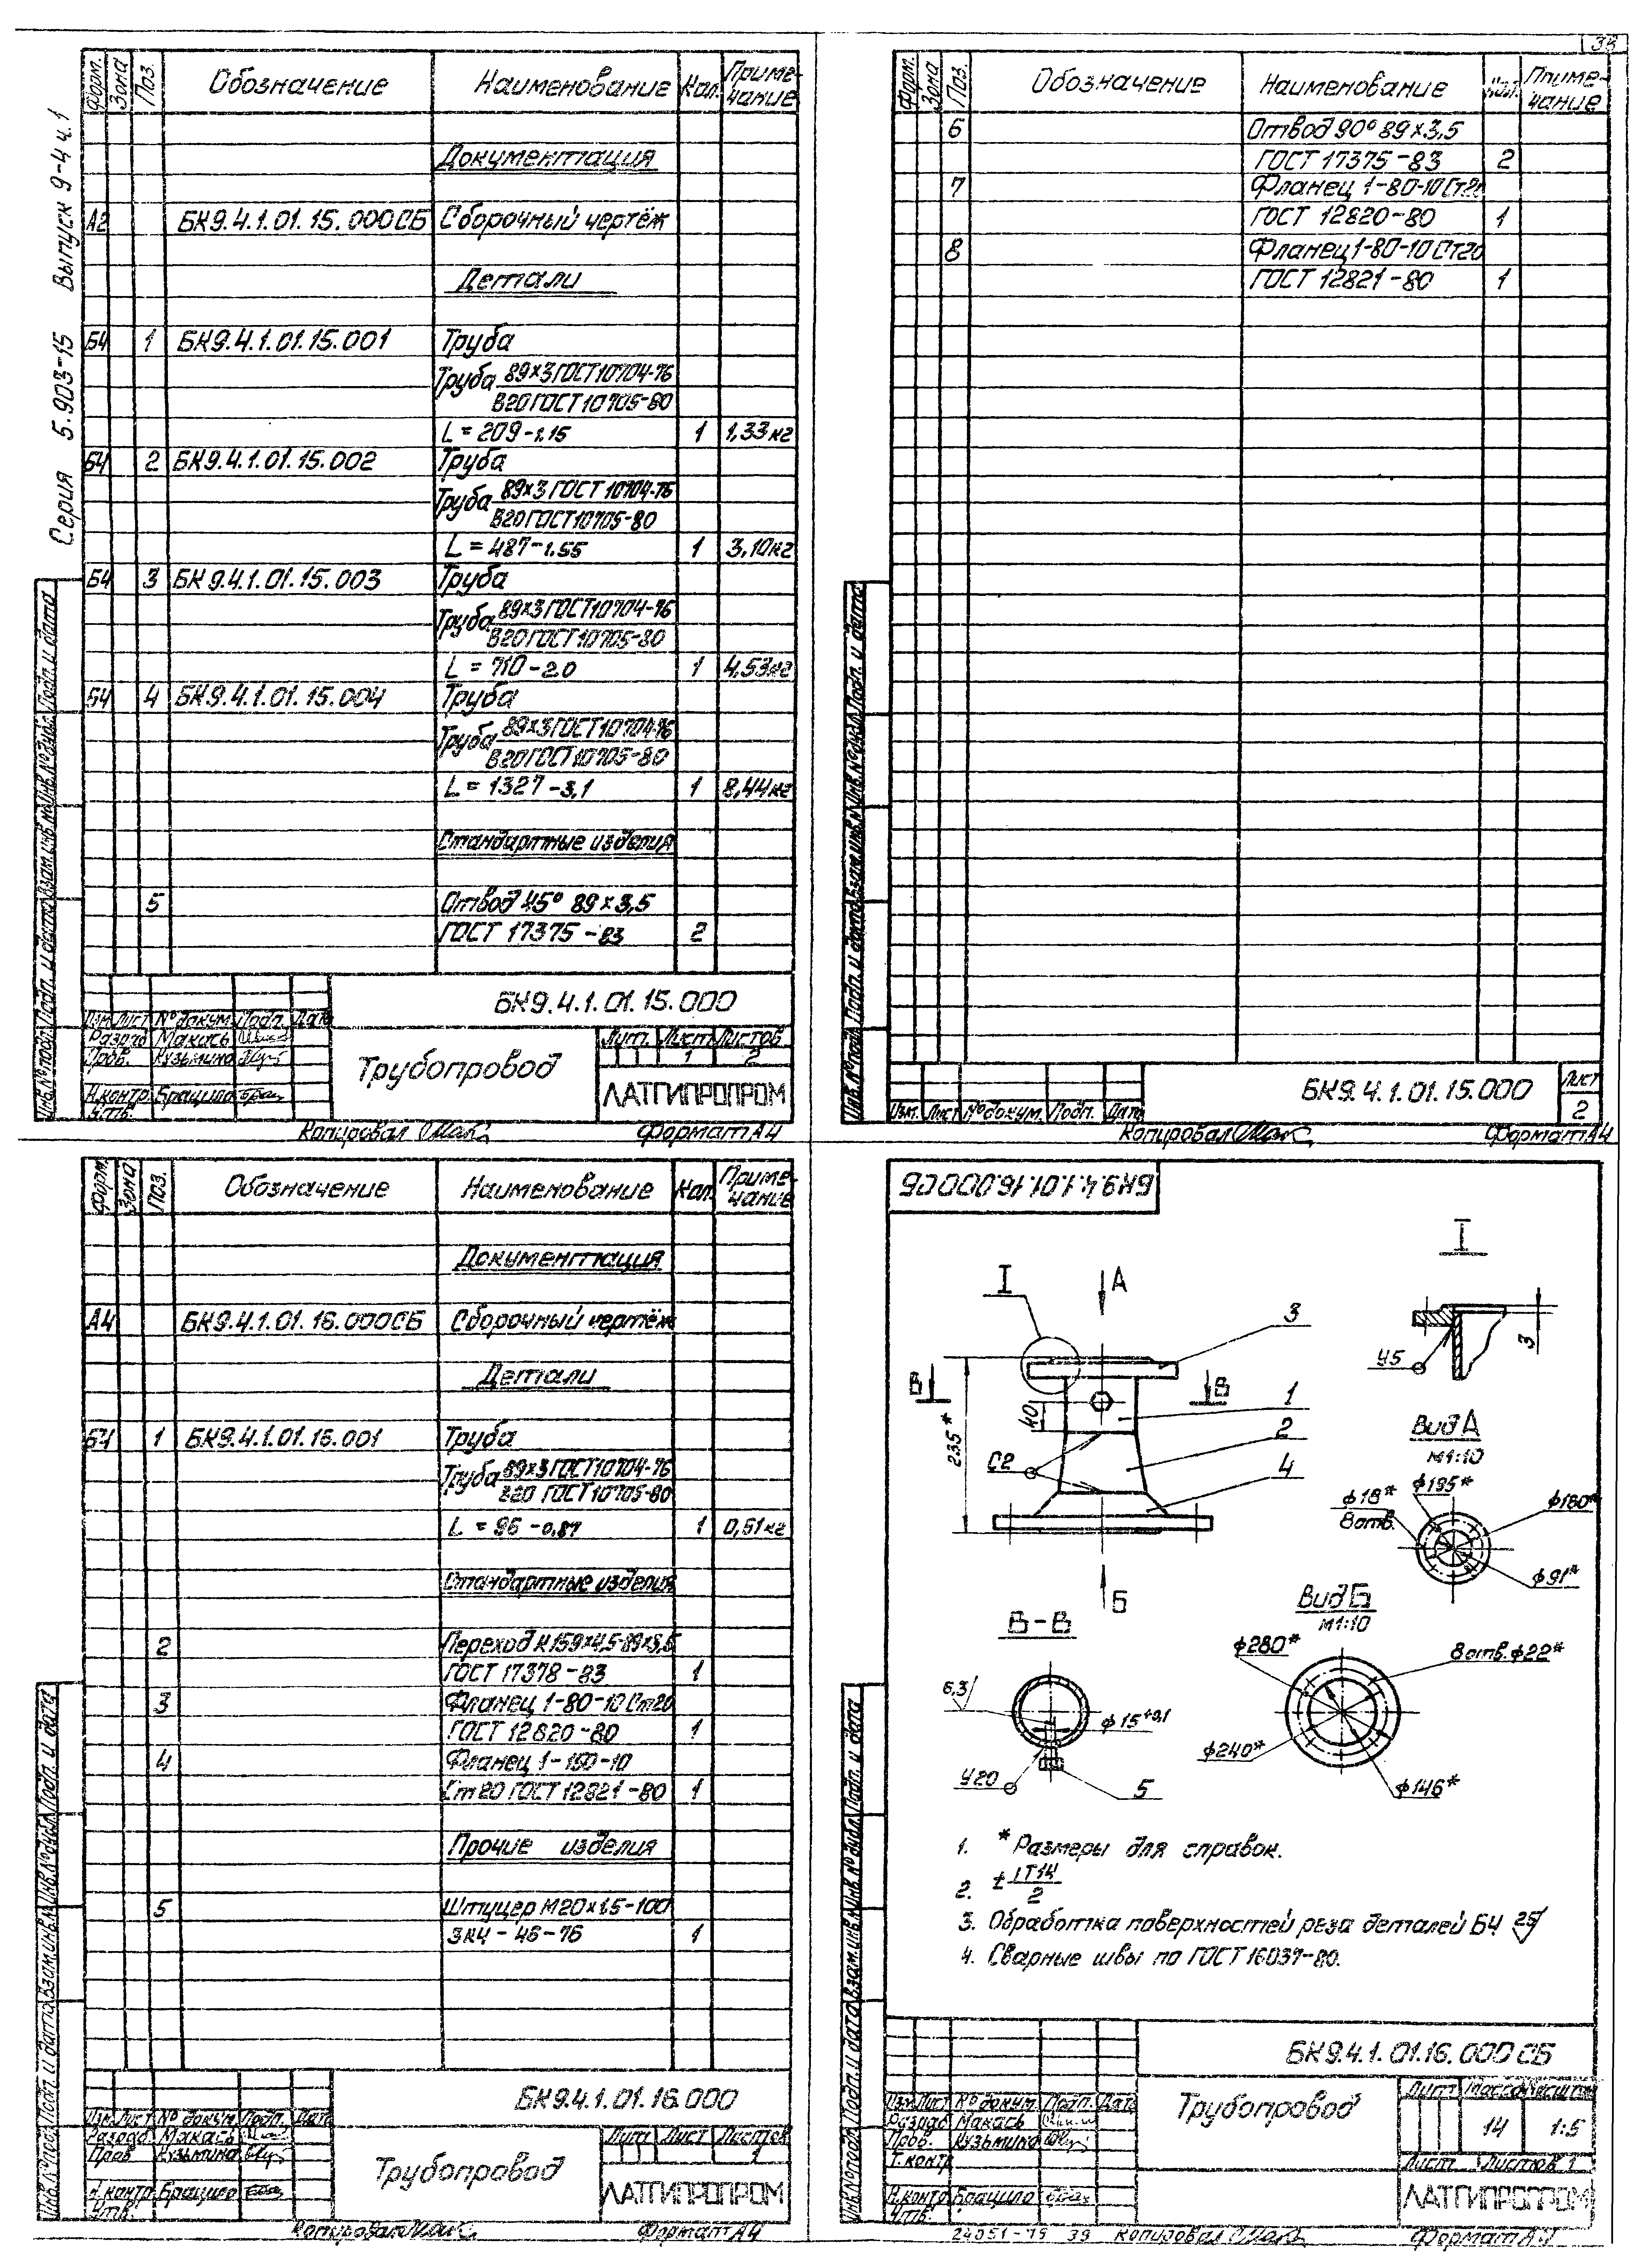 Серия 5.903-15 Выпуск 9-4 ч.1
Форм. Зона Поз. Обозначение Наименование Кол. Приме-чание
Документация
А2 БК9.4.1.01.15.000СБ Сборочный чертёж
Детали
Б4 1 БК9.4.1.01.15.001 Труба
Труба 89×3 ГОСТ 10704-76
В20 ГОСТ 10705-80
L = 209-1.15 1 1,33кг
Б4 2 БК9.4.1.01.15.002 Труба
Труба 89×3 ГОСТ 10704-76
В20 ГОСТ 10705-80
L = 487-1.55 1 3,10кг
Б4 3 БК9.4.1.01.15.003 Труба
Труба 89×3 ГОСТ 10704-76
В20 ГОСТ 10705-80
L = 710-2.0 1 4,53кг
Б4 4 БК9.4.1.01.15.004 Труба
Труба 89×3 ГОСТ 10704-76
В20 ГОСТ 10705-80
L = 1327-3,1 1 8,44кг
Стандартные изделия
5 Отвод 45° 89×3,5
ГОСТ 17375-83 2
Инв.№подл. Подп. и дата Взам.инв.№ Инв.№дубл. Подп. и дата
БК9.4.1.01.15.000
Изм. Лист №докум. Подп. Дата
Разраб. Макась
Пров. Кузьмина
Н.контр. Брацило
Утв.
Трубопровод
Лит. Лист Листов
1 2
ЛАТГИПРОПРОМ
Копировал Формат А4
38
Форм. Зона Поз. Обозначение Наименование Кол. Приме-чание
6 Отвод 90° 89×3,5
ГОСТ 17375-83 2
7 Фланец 1-80-10 Ст.20
ГОСТ 12820-80 1
8 Фланец 1-80-10 Ст20
ГОСТ 12821-80 1
Инв.№подл. Подп. и дата Взам.инв.№ Инв.№дубл. Подп. и дата
Изм. Лист №докум. Подп. Дата
БК9.4.1.01.15.000
Лист
2
Копировал Формат А4
Форм. Зона Поз. Обозначение Наименование Кол. Приме-чание
Документация
А4 БК9.4.1.01.16.000СБ Сборочный чертёж
Детали
Б4 1 БК9.4.1.01.16.001 Труба
Труба 89×3 ГОСТ 10704-76
В20 ГОСТ 10705-80
L = 96-0,87 1 0,61кг
Стандартные изделия
2 Переход К159×4,5-89×3,5
ГОСТ 17378-83 1
3 Фланец 1-80-10 Ст20
ГОСТ 12820-80 1
4 Фланец 1-150-10
Ст20 ГОСТ 12821-80 1
Прочие изделия
5 Штуцер М20×1.5-100
ЗК4-46-76 1
Инв.№подл. Подп. и дата Взам.инв.№ Инв.№дубл. Подп. и дата
БК9.4.1.01.16.000
Изм. Лист № докум. Подп. Дата
Разраб. Макась
Пров. Кузьмина
Н.контр. Брацило
Утв.
Трубопровод
Лит. Лист Листов
1
ЛАТГИПРОПРОМ
Копировал Формат А4
БК9.4.1.01.16.000СБ
I А 3
В В
40 1
235* 2
С2 4
Б
I
У5 3
Вид А
М1:10
ф18* ф195* ф160*
8отв.
ф91*
В-В
6,3
ф15+0,1
У20 5
Вид Б
М1:10
ф280* 8отв.ф22*
ф240* ф146*
1. *Размеры для справок.
2. ± IT14/2
3. Обработка поверхностей реза деталей Б4 25
4. Сварные швы по ГОСТ 16037-80.
Инв.№подл. Подп. и дата Взам.инв.№ Инв.№дубл. Подп. и дата
БК9.4.1.01.16.000СБ
Изм. Лист № докум. Подп. Дата
Разраб. Макась
Пров. Кузьмина
Т.контр.
Н.контр. Брацило
Утв.
Трубопровод
Лит. Масса Масштаб
14 1:5
Лист Листов 1
ЛАТГИПРОПРОМ
39 Копировал Формат А4